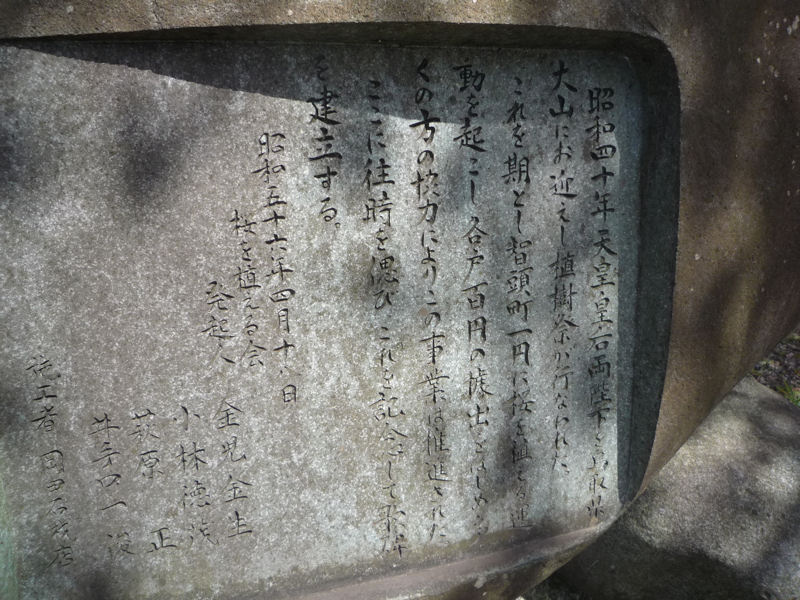 昭和四十年天皇・皇后両陛下を鳥取県
大山にお迎えし植樹祭が行なわれた
これを期とし智頭町一円に桜を植える運
動を起こし各戸百円の拠出をはじめ多
くの方の協力によりこの事業は推進された
ここに往時を偲びこれを記念して歌碑
を建立する。
昭和五十六年四月十八日
桜を植える会
発起人 金児金生
小林徳茂
萩原 正
井方四一
施工者 岡田石材店